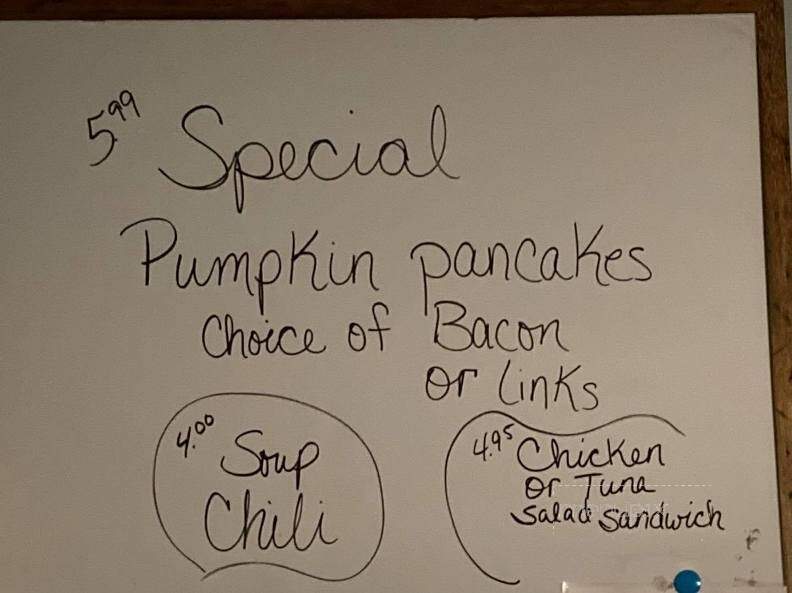 5.99 Special
Pumpkin pancakes
Choice of Bacon
or links
4.00 Soup
Chili
4.95 Chicken
or Tuna
Salad Sandwich